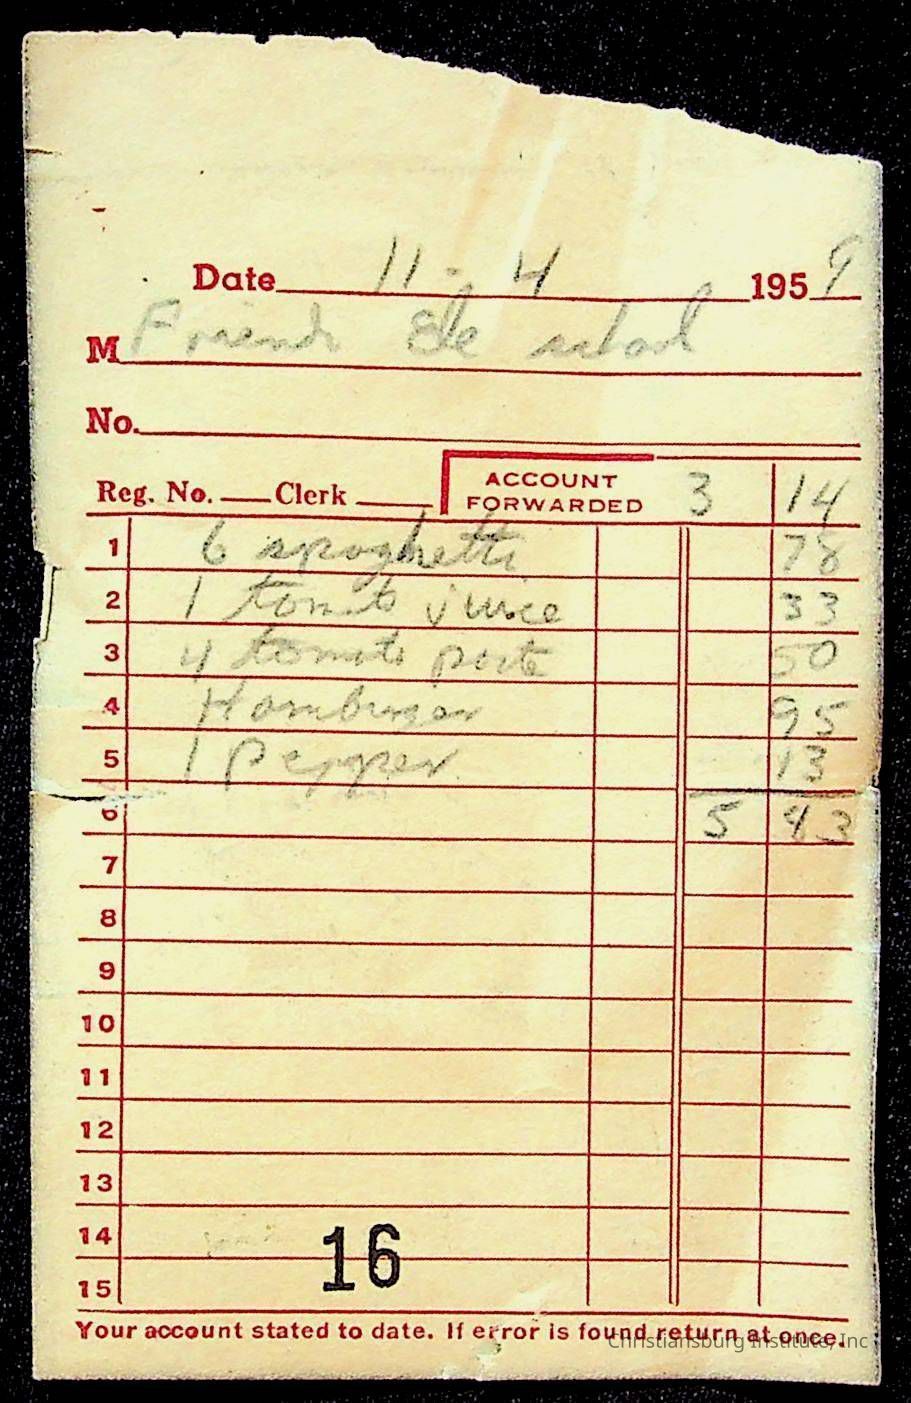 Date 11 - 4 1959
M Friends Ele school
No.
Reg. No. Clerk ACCOUNT FORWARDED 3 14
1 6 spaghetti 78
2 1 tomato juice 33
3 4 tomato paste 50
4 Hamburger 95
5 1 Pepper 13
6 5 83
7
8
9
10
11
12
13
14
16
15
Your account stated to date. If error is found return at once.
Christiansburg Institute, Inc